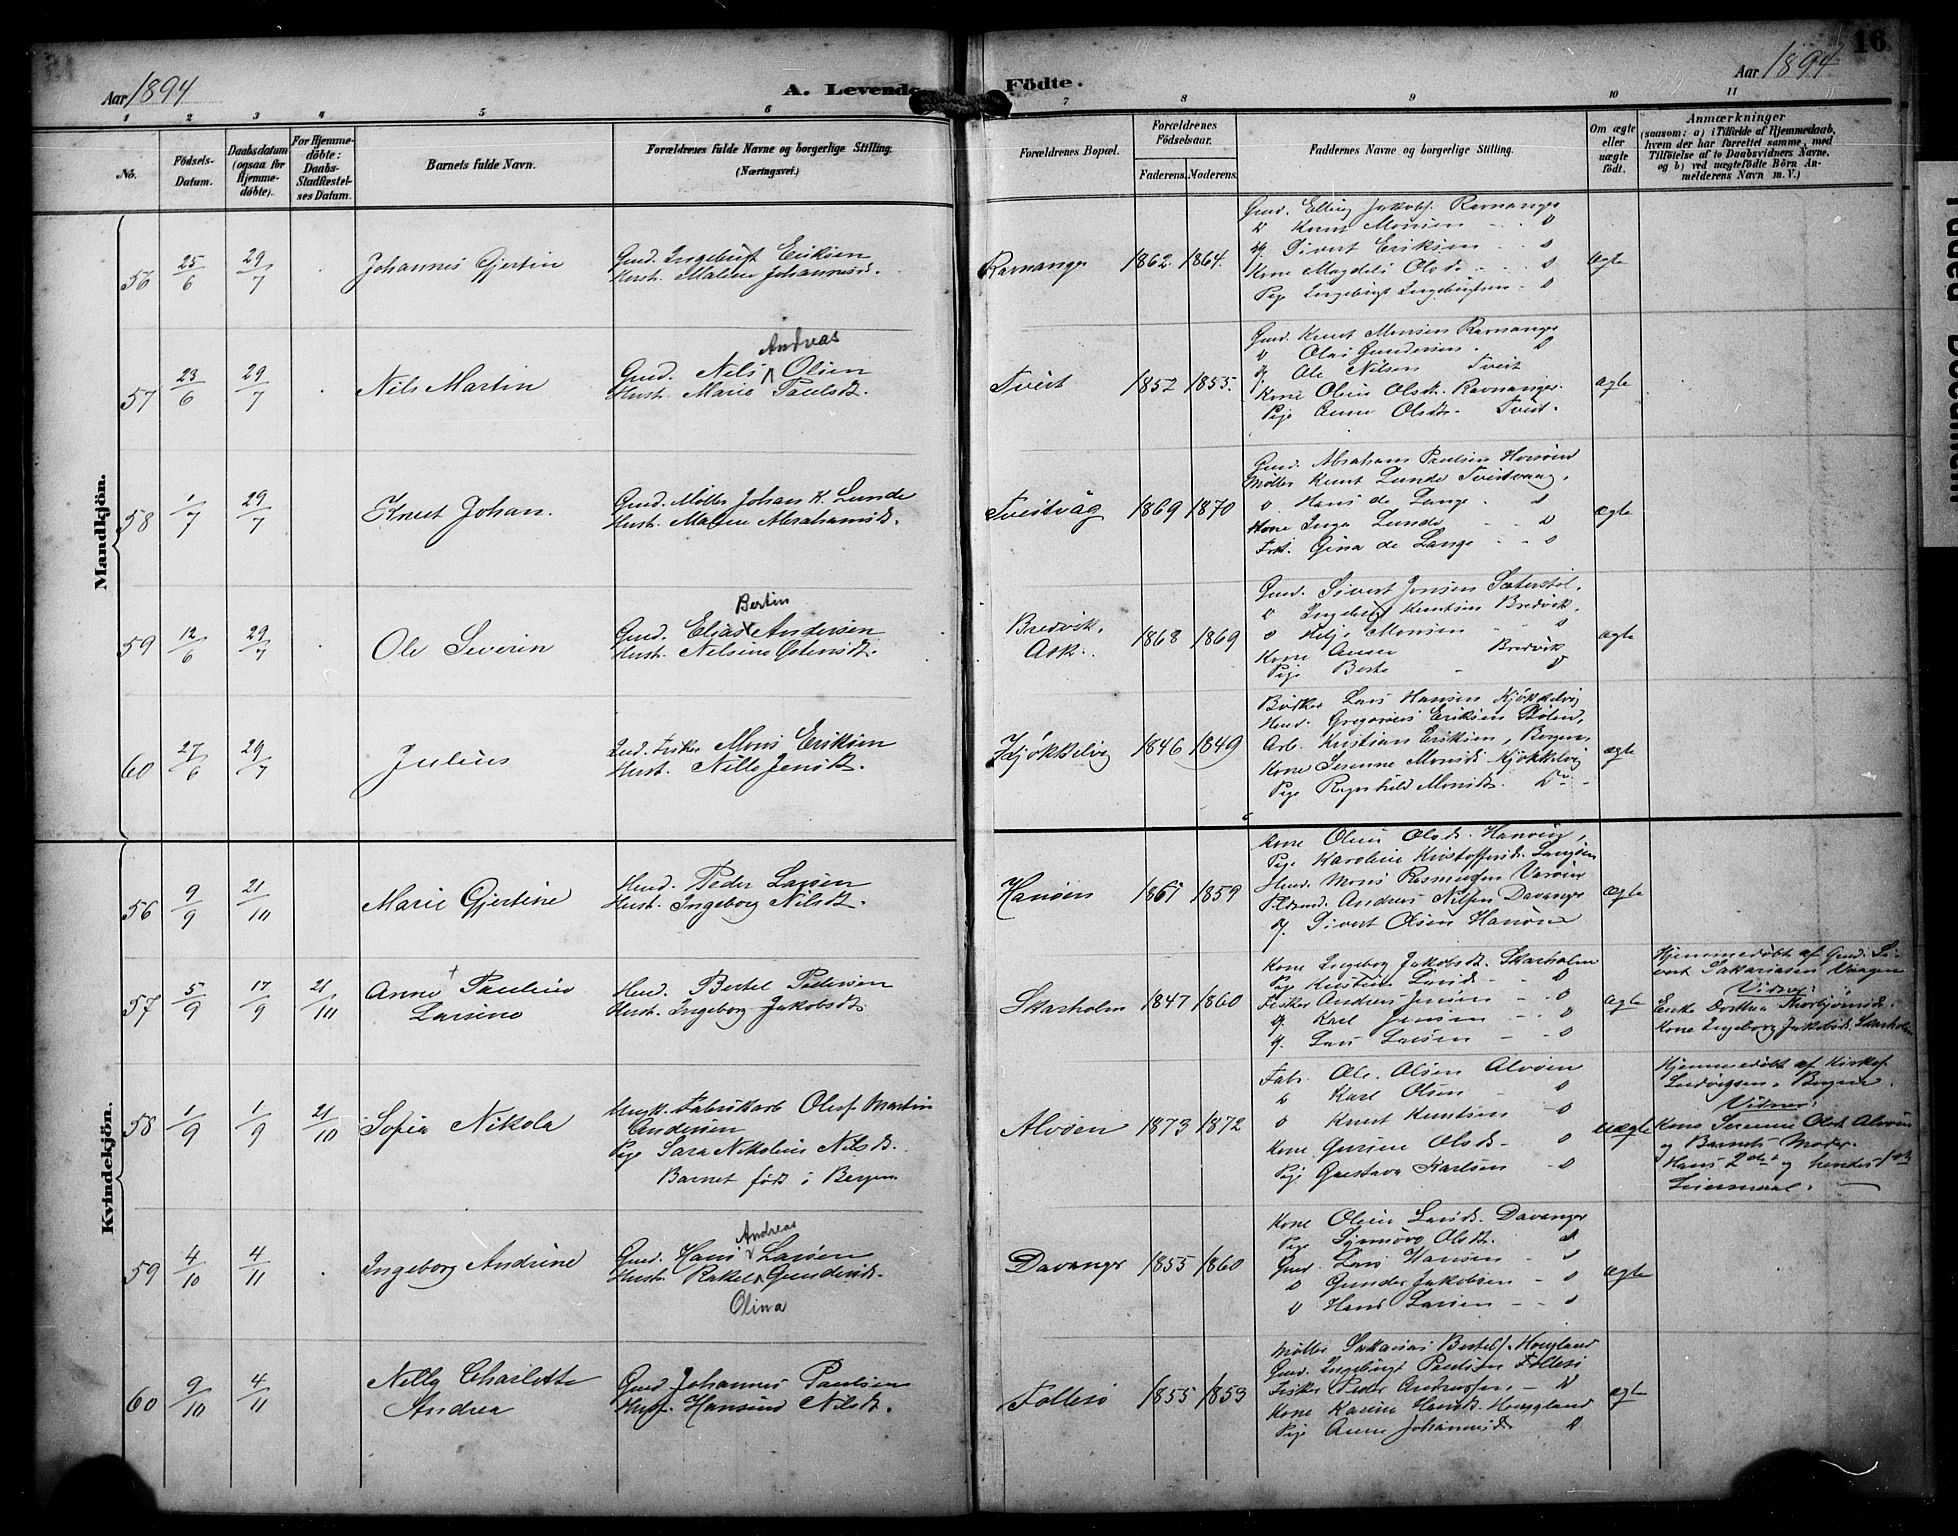 16
Aar 1894
A. Levende
Födte.
Aar 1894
1 2 3 4 5 6 7 8 9 10 11
No.
Födsels-
Datum.
Daabsdatum
(ogsaa for
Hjemme-
döbte).
For Hjemme-
döbte:
Daabs-
Stadfæstel-
ses Datum.
Barnets fulde Navn.
Forældrenes fulde Navne og borgerlige Stilling.
(Næringsvei.)
Forældrenes Bopæl.
Forældrenes
Födselsaar.
Faderens. Moderens.
Faddernes Navne og borgerlige Stilling.
Om ægte
eller
uægte
födt.
Anmærkninger
(saasom: a) i Tilfælde af Hjemmedaab,
hvem der har forrettet samme, med
Tilföielse af to Daabsvidners Navne.
og b) ved uægtefödte Börn An-
melderens Navn m. V.)
Mandkjön.
56 25/6 29/7
Johannes Gjertin
Gmd. Ingebrigt Eriksen
Hust. Malene Johannesd.
Ravnanger 1862. 1864.
Gmd. Elling Jakobs. Ravnanger
" Knut Monsen
Ug. Sivert Eriksen
Kone Magdeli Olsd.
Pige Ingeborg Ingebrigtsen
ægte
57 23/6 29/7
Nils Martin
Andreas
Gmd. Nils Olsen
Hust. Marie Paulsdt.
Tveit 1852 1855.
Gmd. Knut Monsen Ravnanger
" Olai Gundersen
Ug. Ole Nilsen Tveit
Kone Oline Olsdt. Ravnanger.
Pige Anne Olsdtr. Tveit.
ægte
58 1/7 29/7
Knut Johan.
Gmd. Møller Johan K. Lunde
Hust. Malene Abrahamsd.
Tveitvåg 1869 1870
Gmd. Abraham Paulsen
Møller Knut Lunde Tveitvaag.
" Hans de Lange
Kone Inga Lunde
Frk. Gina de Lange
ægte
59 12/6 29/7
Ole Severin
Bertin
Gmd. Elias Andersen
Hust. Nelsine Ostensdt.
Bredvik.
Ask. 1868 1869
Gmd. Sivert Jensen Sæterstøl.
" Ingebrigt Knutsen Bredvik.
" Helje Monsen
Kone Anna Bredvik
Pige Berte
ægte
60 27/6 29/7
Julius
Ind. Fisker Mons Eriksen
Hust. Nille Jensdt.
Kjøkkelvig 1846 1849
Bødker Lars Hansen Kjøkkelvig
Hmd. Gregorius Eriksen
Arb. Kristian Eriksen, Bergen
Kone Serenne Monsd. Kjøkkelvig
Pige Ragnhild Monsdt.
ægte
Kvindekjön.
56 9/9 21/10
Marie Gjertine
Hmd. Peder Larsen
Hust. Ingeborg Nilsdt.
Hanøen 1867 1859
Kone Oline Olsd. Hanøen,
Pige Karoline Kristoffersd. Langøen
Hmd. Mons Rasmussen
Andreas Nilsen Davanger
Ug. Sivert Olsen Hanøen
ægte
57 5/9 17/9 21/10
Anne Pauline
Larsine
Hmd. Bertel Pedersen
Hust. Ingeborg Jakobsdt.
Skarholm 1847 1860
Kone Ingeborg Jakobsdt. Skarholm
Pig. Kristine Larsd.
Fisker Anders Jensen
Ug. Karl Jensen
Ug. Lars Larsen
ægte
Hjemmedøbt af Gmd. Si-
vert Sakariasen Vaagen
Vidner:
Enke Dorthea Thorbjørnsd.
Kone Ingeborg Jakobsd. Skarholm
58 1/9 1/9 21/10
Sofia Nikola
Ungk. Fabrikarb Oluf Martin
Andersen
Pige Sara Nikoline Nilsdt.
Barnet født i Bergen.
Alvøen 1873 1872
Fabr. Ole Olsen Alvøen
" Karl Olsen
" Knut Knutsen
Kone Gurine Olsd.
Pige Gustava Karlsen
uægte
Hjemmedøbt af
Ludvigsen, Bergen.
Vidner:
Kone Serenne Olsd. Alvøen
og Barnets Moder.
Hans 2det og hendes 1ste
Leiermaal.
59 4/10 4/11
Ingeborg Andrine
Andreas
Gmd. Hans Larsen
Hust. Rakel Gundersd.
Olina
Davanger 1855 1860
Kone Oline Larsd. Davanger
Pige Synnøve Olsdt.
Gmd. Lars Hansen
" Gunder Jakobsen
" Hans Larsen
ægte
60 9/10 4/11
Nelly Charlotte
Andrea
Gmd Johannes Paulsen
Hust. Hansine Nilsdt.
Follesø 1855 1853
Møller Sakarias Bertels. Hougland
Gmd. Ingebrigt Paulsen Follesø
Fisker Peder Andreassen
Kone Karine Hansdt. Hougland
Pige Anne Johannesdt.
ægte